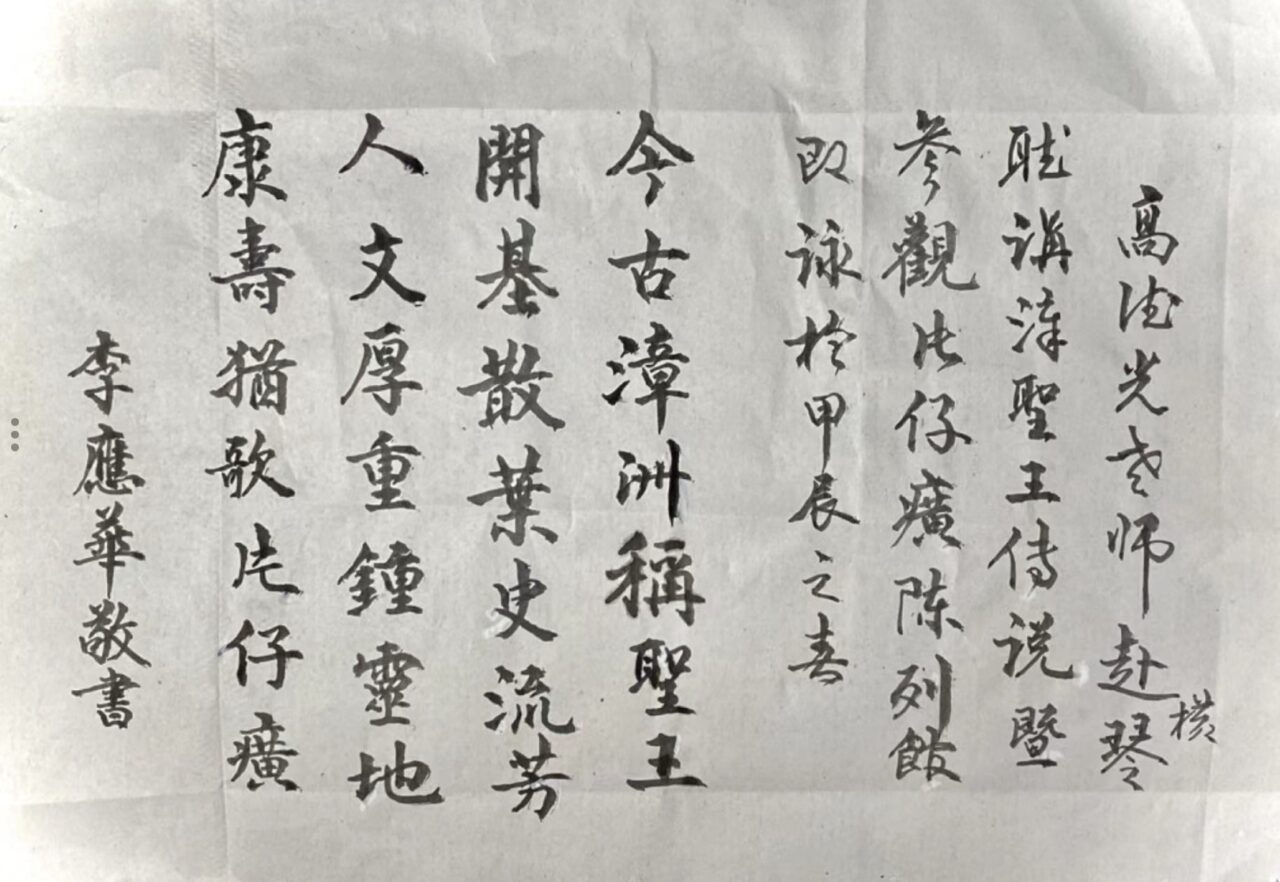 高德光老师赴横琴
聽講漳聖王传说暨
參觀片仔癀陈列館
即詠於甲辰之春
今古漳洲稱聖王
開基散葉史流芳
人文厚重鍾靈地
康壽猶歌片仔癀
李應華敬書